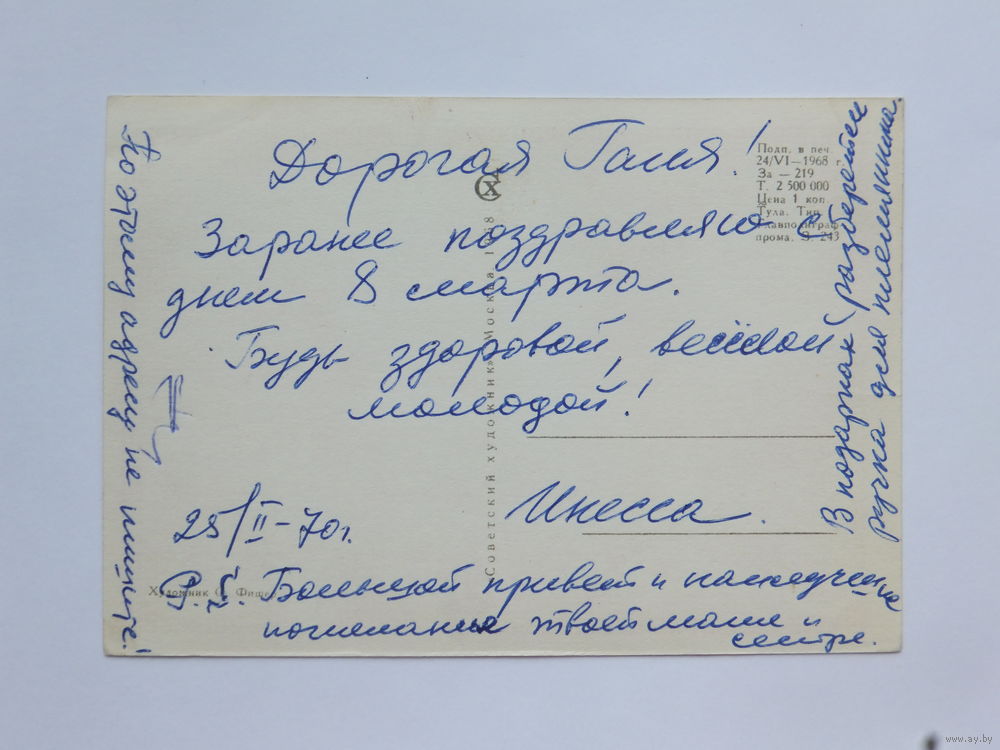 Дорогая Галя!
Заранее поздравляю с
днем 8 марта.
Будь здоровой, весёлой
молодой!
Инесса.
25/II-70г.
P.S. Большой привет и наилучшие
пожелания твоей маме и
сестре.
По этому адресу не пишите!
В подарках разберетесь
ручка для племянника.
Подп. в печ.
24/VI—1968 г.
За — 219
Т. 2 500 000
Цена 1 коп
Тула. Тип.
Главполиграф
прома. З. 243
Советский художник» Москва 1968
СХ
Художник С. Фише
www.ay.by